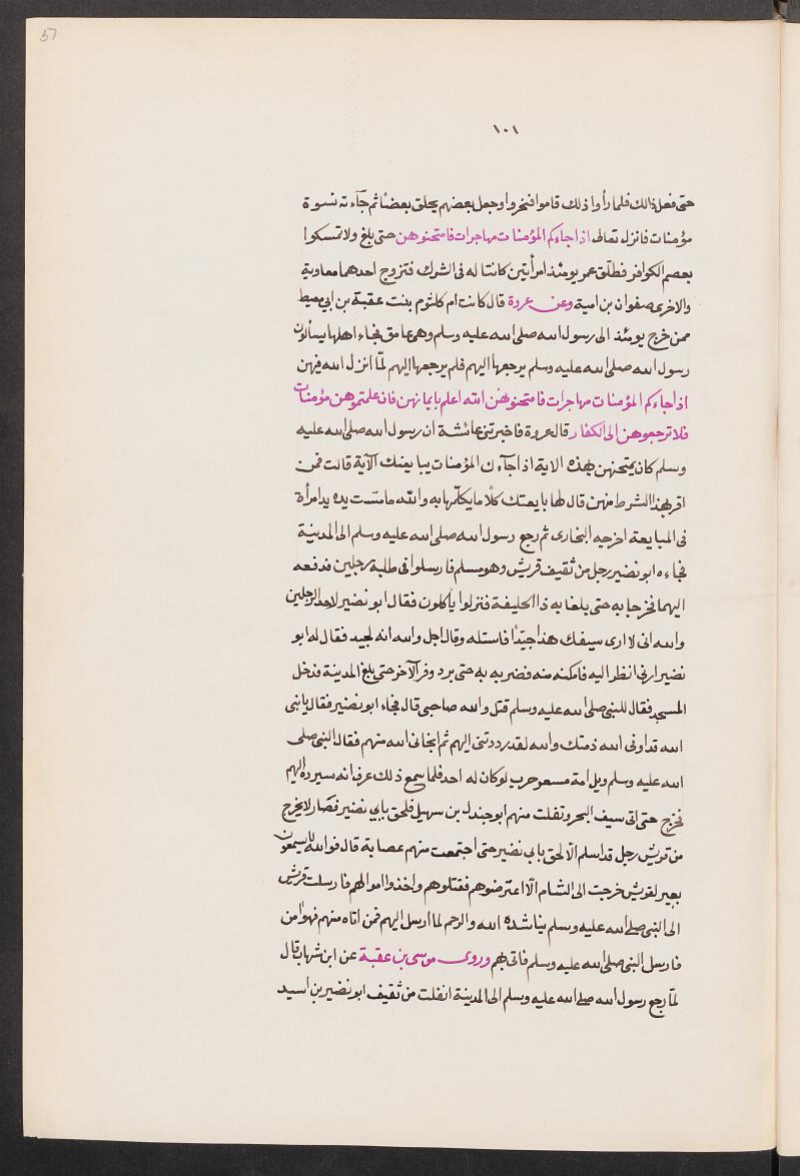 57
١٠١
حتى فعل ذالك فلما رأوا ذلك قاموا فنخروا وجعل بعضهم يحلق بعضا ثم جآءته نسوة
مؤمنات فانزل تعالى اذا جاءكم المؤمنات مهاجرات فامتحنوهن حتى بلغ ولا تمسكوا
بعصم الكوافر فطلّق عمر يومئذ امرأتين كانتا له فى الشرك فتزوج احدهما معاوية
والاخرى صفوان بن امية وعن عروة قال كانت ام كلثوم بنت عقبة بن ابي معيط
ممن خرج يومئذ الى رسول الله صلى الله عليه وسلم وهى عاتق فجاء اهلها يسألون
رسول الله صلى الله عليه وسلم يرجعها اليهم فلم يرجعها اليهم لمّا انزل الله فيهن
اذا جاءكم المؤمنات مهاجرات فامتحنوهن الله اعلم بايمانهن فان علمتموهن مؤمنات
فلا ترجعوهن الى الكفار قال عروة فاخبرتنى عائشة ان رسول الله صلى الله عليه
وسلم كان يمتحنهن بهذه الاية اذا جآءك المؤمنات يبايعنك الآية قالت فمن
اقر بهذا الشرط منهن قال لها بايعتك كلاما يكلّمها به والله ما مسّت يده يد امرأة
فى المبايعة اخرجه البخارى ثم رجع رسول الله صلى الله عليه وسلم الى المدينة
فجاءه ابو نضير رجل من ثقيف قريش وهو مسلم فارسلوا فى طلبة رجلين فدفعه
اليهما فخرجا به حتى بلغا به ذا الحليفة فنزلوا يأكلون فقال ابو نضير لاحد الرجلين
والله انى لا ارى سيفك هذا جيّدًا فاستله وقال اجل والله انه لجيد فقال له ابو
نضير ارنى انظر اليه فامكنه منه فضربه به حتى برد وفر الآخر حتى بلغ المدينة فدخل
المسجد فقال للنبى صلى الله عليه وسلم قتل والله صاحبى قال فجاء ابو نضير فقال يا نبى
الله قد اوفى الله ذمتك والله لقد رددتنى اليهم ثم انجانى الله منهم فقال النبى صلى
الله عليه وسلم ويل امة مسعر حرب لو كان له احد فلما سمع ذلك عرف انه سيرده اليهم
فخرج حتى اتى سيف البحر وتفلت منهم ابو جندل بن سهيل فلحق بابي نضير فصار لا يخرج
من قريش رجل قد اسلم الّا لحق بابي نضير حتى اجتمعت منهم عصابة قال فوالله لا يسمعون
بعير لقريش خرجت الى الشام الّا اعترضوهم فقتلوهم واخذوا اموالهم فارسلت قريش
الى النبى صلى الله عليه وسلم يناشده الله والرحم لما ارسل اليهم فمن اتاه منهم فهو امن
فارسل النبى صلى الله عليه وسلم فاتى بهم وروى موسى بن عقبة عن ابن شهاب قال
لمّا رجع رسول الله صلى الله عليه وسلم الى المدينة انفلت من ثقيف ابو نضير بن اسيد